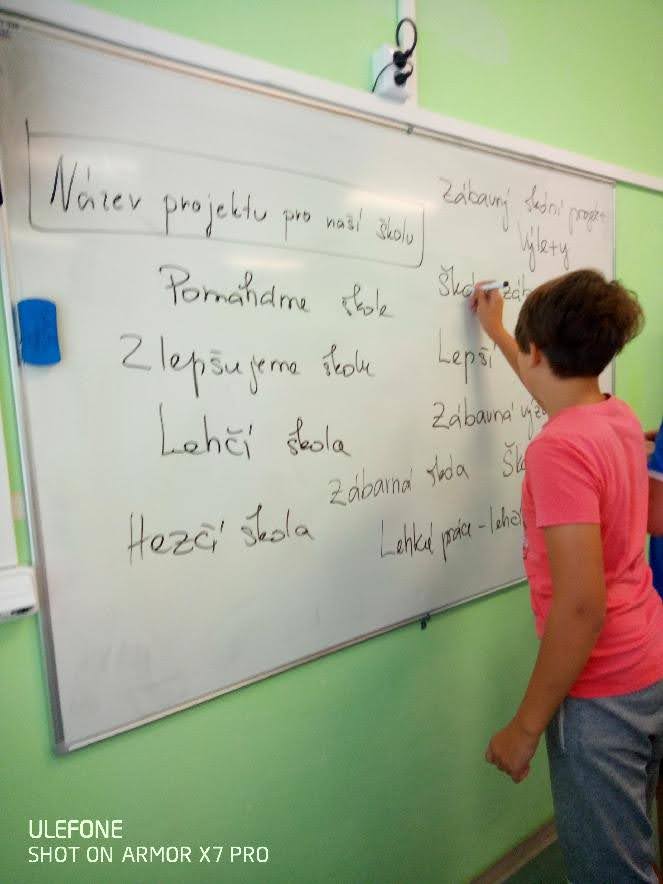 Název projektu pro naší školu
Pomáháme škole
Zlepšujeme školu
Lehčí škola
Hezčí škola
Zábavný školní projekt
Výlety
Lepší
Zábavná
Zábavná škola
Lehká práce - lehčí
ULEFONE
SHOT ON ARMOR X7 PRO